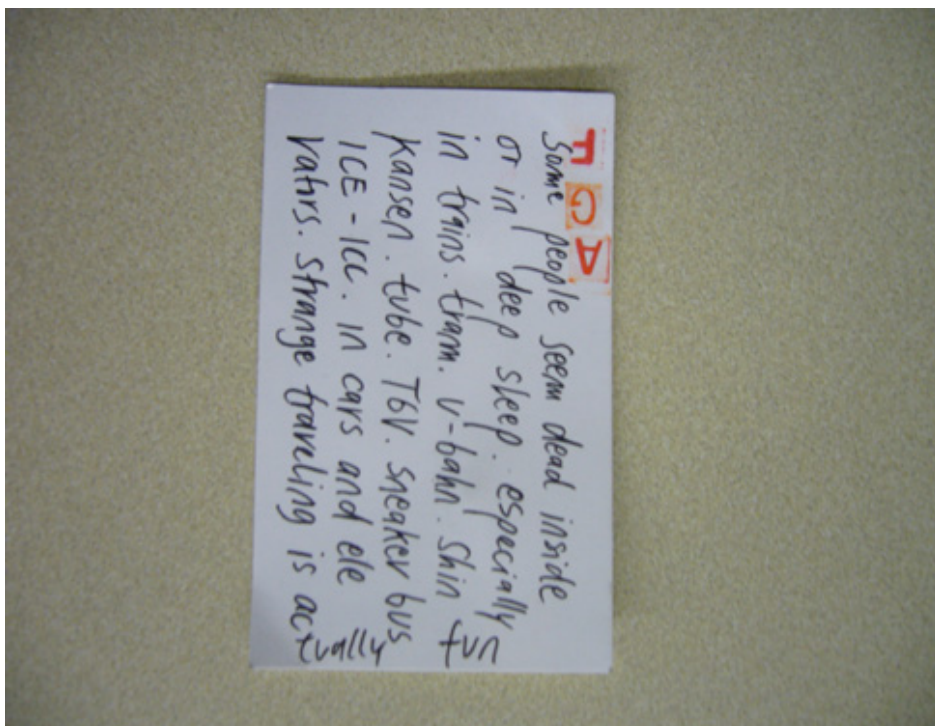 F G A
Some people seem dead inside
or in deep sleep. especially
in trains. tram. U-bahn. Shin
kansen. tube. TGV. sneaker bus
ICE - ICC. in cars and ele
vatrs. strange traveling is actually
fun